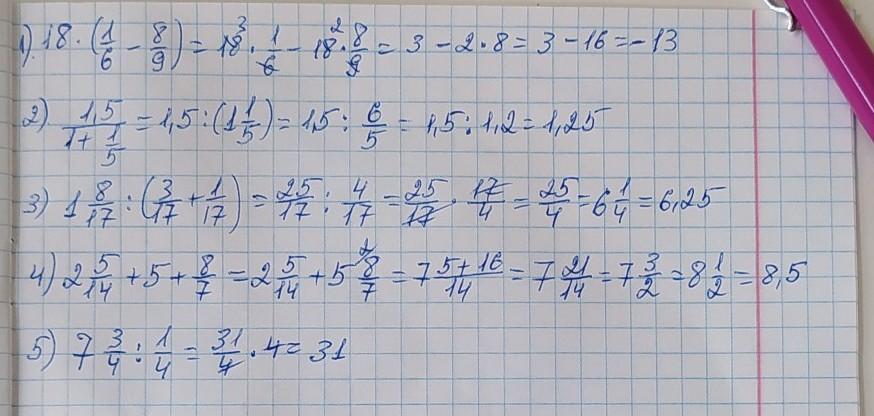 1) 18 · (1/6 - 8/9) = 18 · 1/6 - 18 · 8/9 = 3 - 2 · 8 = 3 - 16 = -13
2) 1,5/(1 + 1/5) = 1,5 : (1 1/5) = 1,5 : 6/5 = 1,5 : 1,2 = 1,25
3) 1 8/17 : (3/17 + 1/17) = 25/17 : 4/17 = 25/17 · 17/4 = 25/4 = 6 1/4 = 6,25
4) 2 5/14 + 5 + 8/7 = 2 5/14 + 5 8/7 = 7 (5+16)/14 = 7 21/14 = 7 3/2 = 8 1/2 = 8,5
5) 7 3/4 : 1/4 = 31/4 · 4 = 31